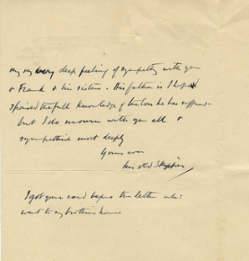 my very deep feeling of sympathy with you
& Frank & his sisters. His father is I hope
spared the full knowledge of the loss he has suffered
but I do mourn with you all &
sympathise most deeply
Yours ever
I got your card before the letter
went to my brothers house